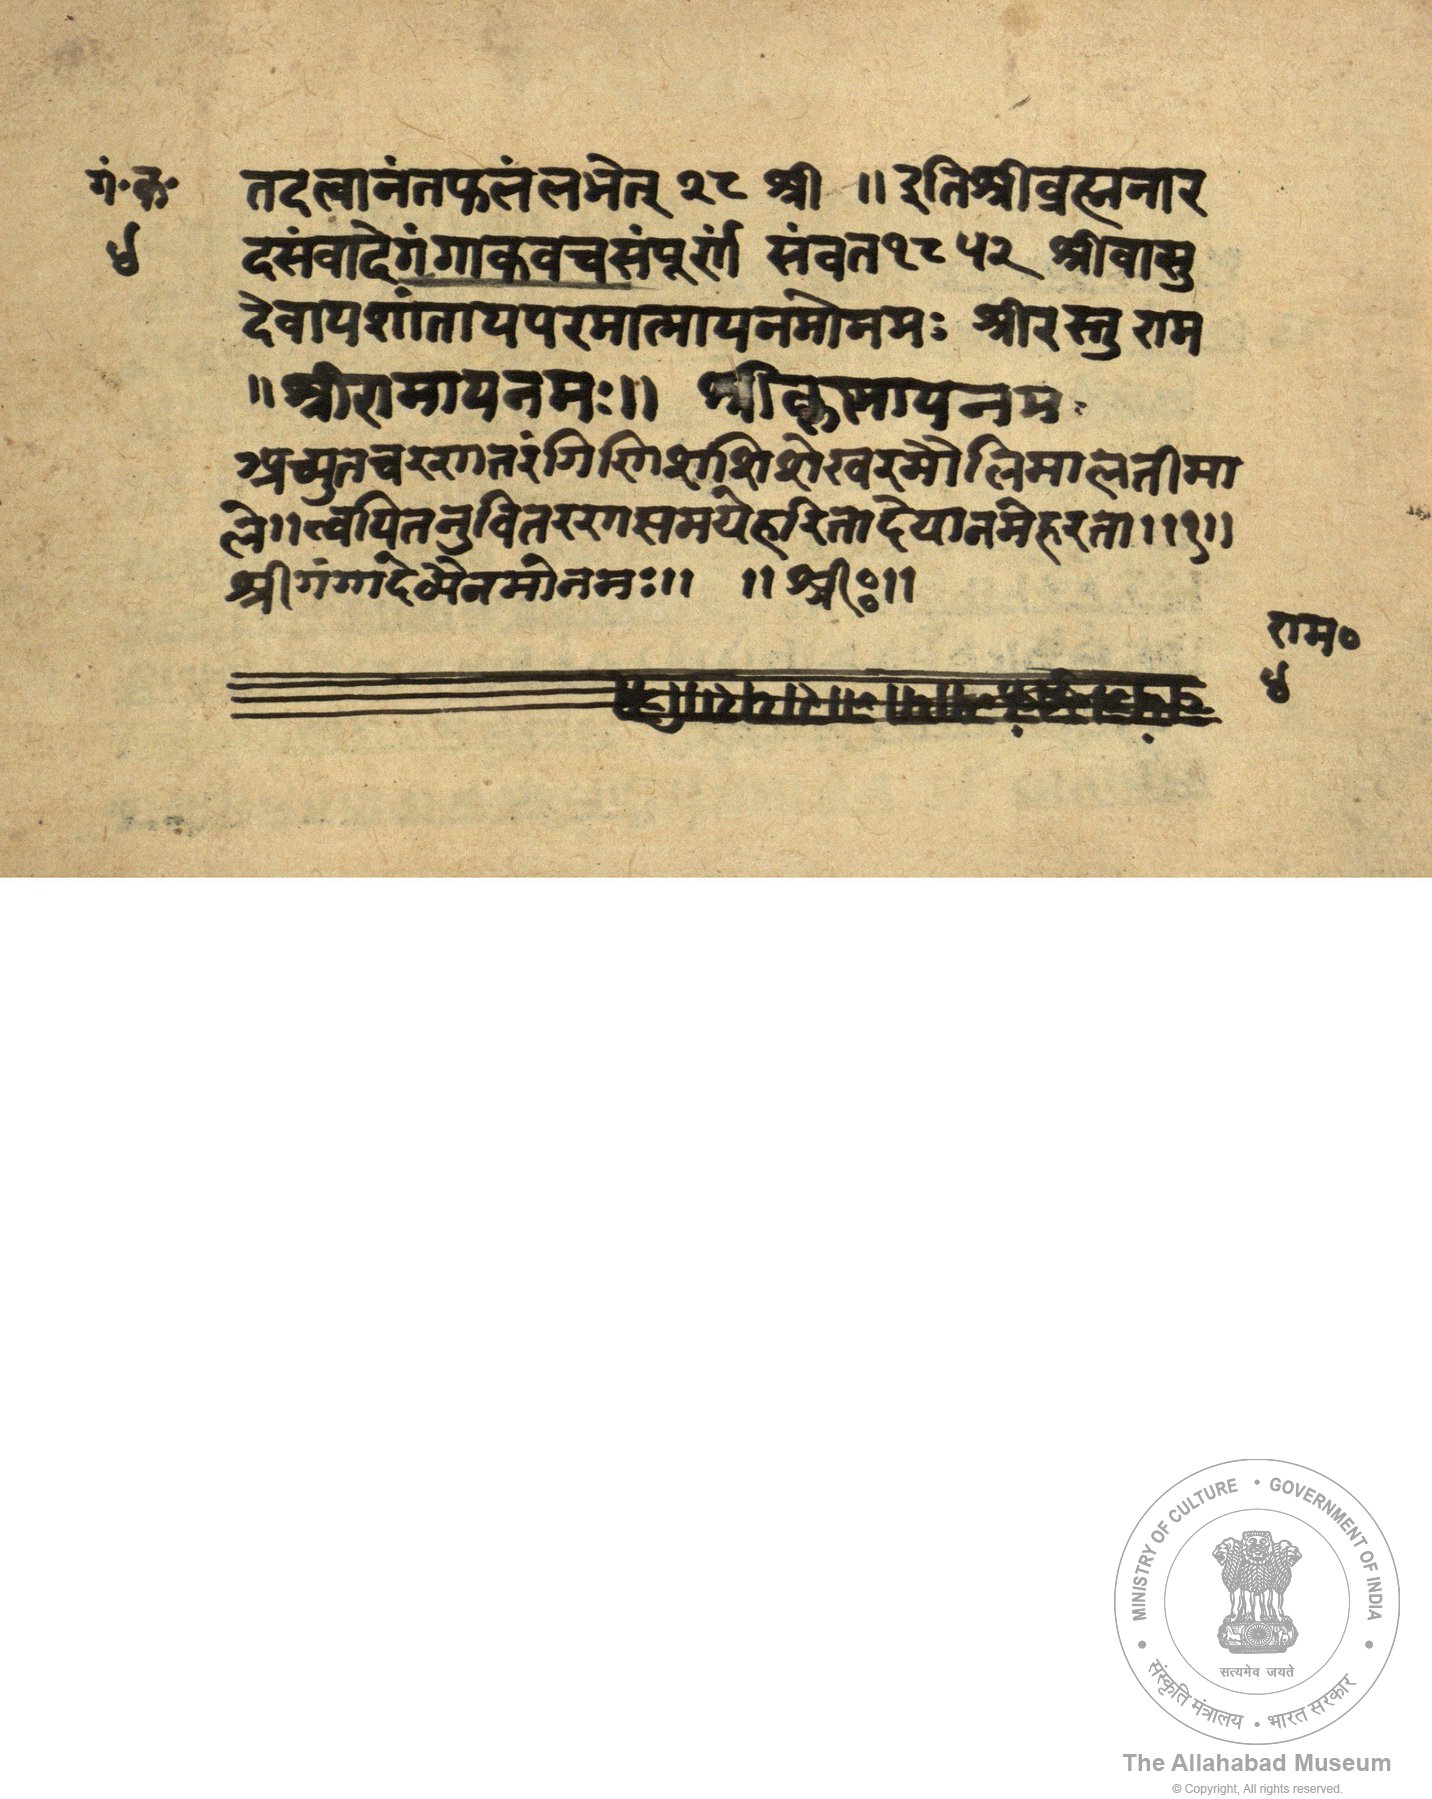 गं॰क॰
४
तदत्वानंतफलंलभेत् २८ श्री ॥ इतिश्रीब्रह्मनार
दसंवादेगंगाकवचसंपूर्णं संवत१८५२ श्रीवासु
देवायशांतायपरमात्मायनमोनमः श्रीरस्तु राम
॥श्रीरामायनमः॥ श्रीकृष्णायनम
अच्युतचरणतरंगिणिशशिशेखरमौलिमालतीमा
ले॥त्वयितनुवितरणसमयेहरितादेयानमेहरता॥१॥
श्रीगंगादेव्यैनमोनमः॥ ॥श्रीः॥
राम०
४
MINISTRY OF CULTURE • GOVERNMENT OF INDIA
सत्यमेव जयते
संस्कृति मंत्रालय • भारत सरकार
The Allahabad Museum
© Copyright, All rights reserved.